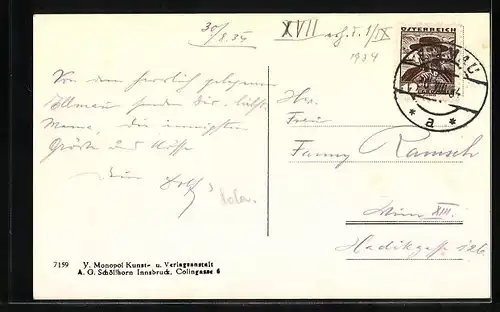 30/8.34
XVII erh. d. 1/IX
1934
ÖSTERREICH
12
* a *
Von dem herrlich gelegenen
Ellmau senden dir, liebste
Mama, die innigsten
Grüße und Küsse
dein
Frau
Fanny Ramsch
Wien XIII.
Hadikgasse
7159 V. Monopol Kunst- u. Verlagsanstalt
A. G. Schöllhorn Innsbruck, Colingasse 6